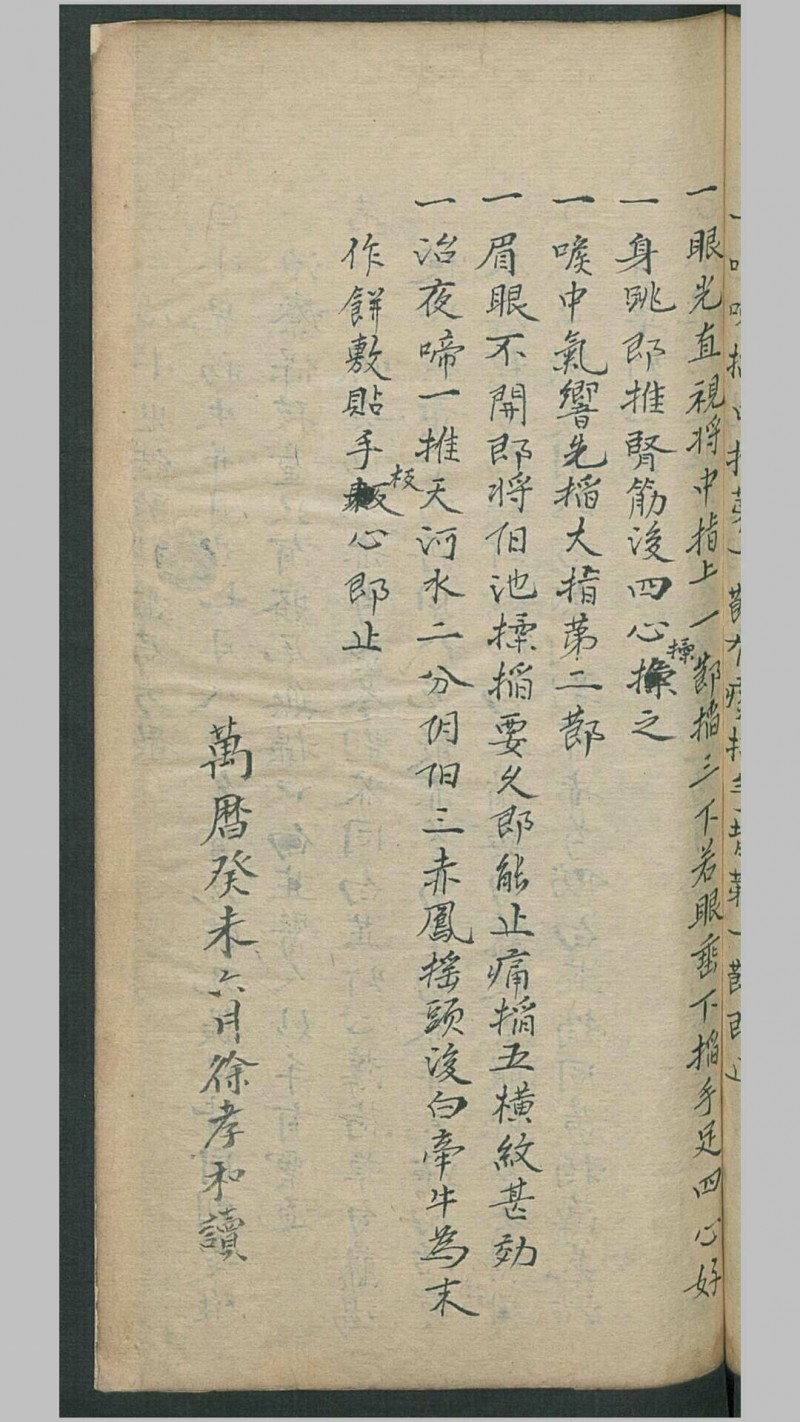 一眼光直視将中指上一節搯三下若眼垂下搯手足四心好
一身跳郎推腎筋後四心揉之
一喉中氣響先搯大指苐二節
一眉眼不開郎将阳池揉搯要久郎能止痛搯五橫紋甚効
一治夜啼一推天河水二分阴阳三赤鳳摇頭後白牵牛為末
作餅敷貼手板心郎止
萬曆癸未六月徐孝和讀